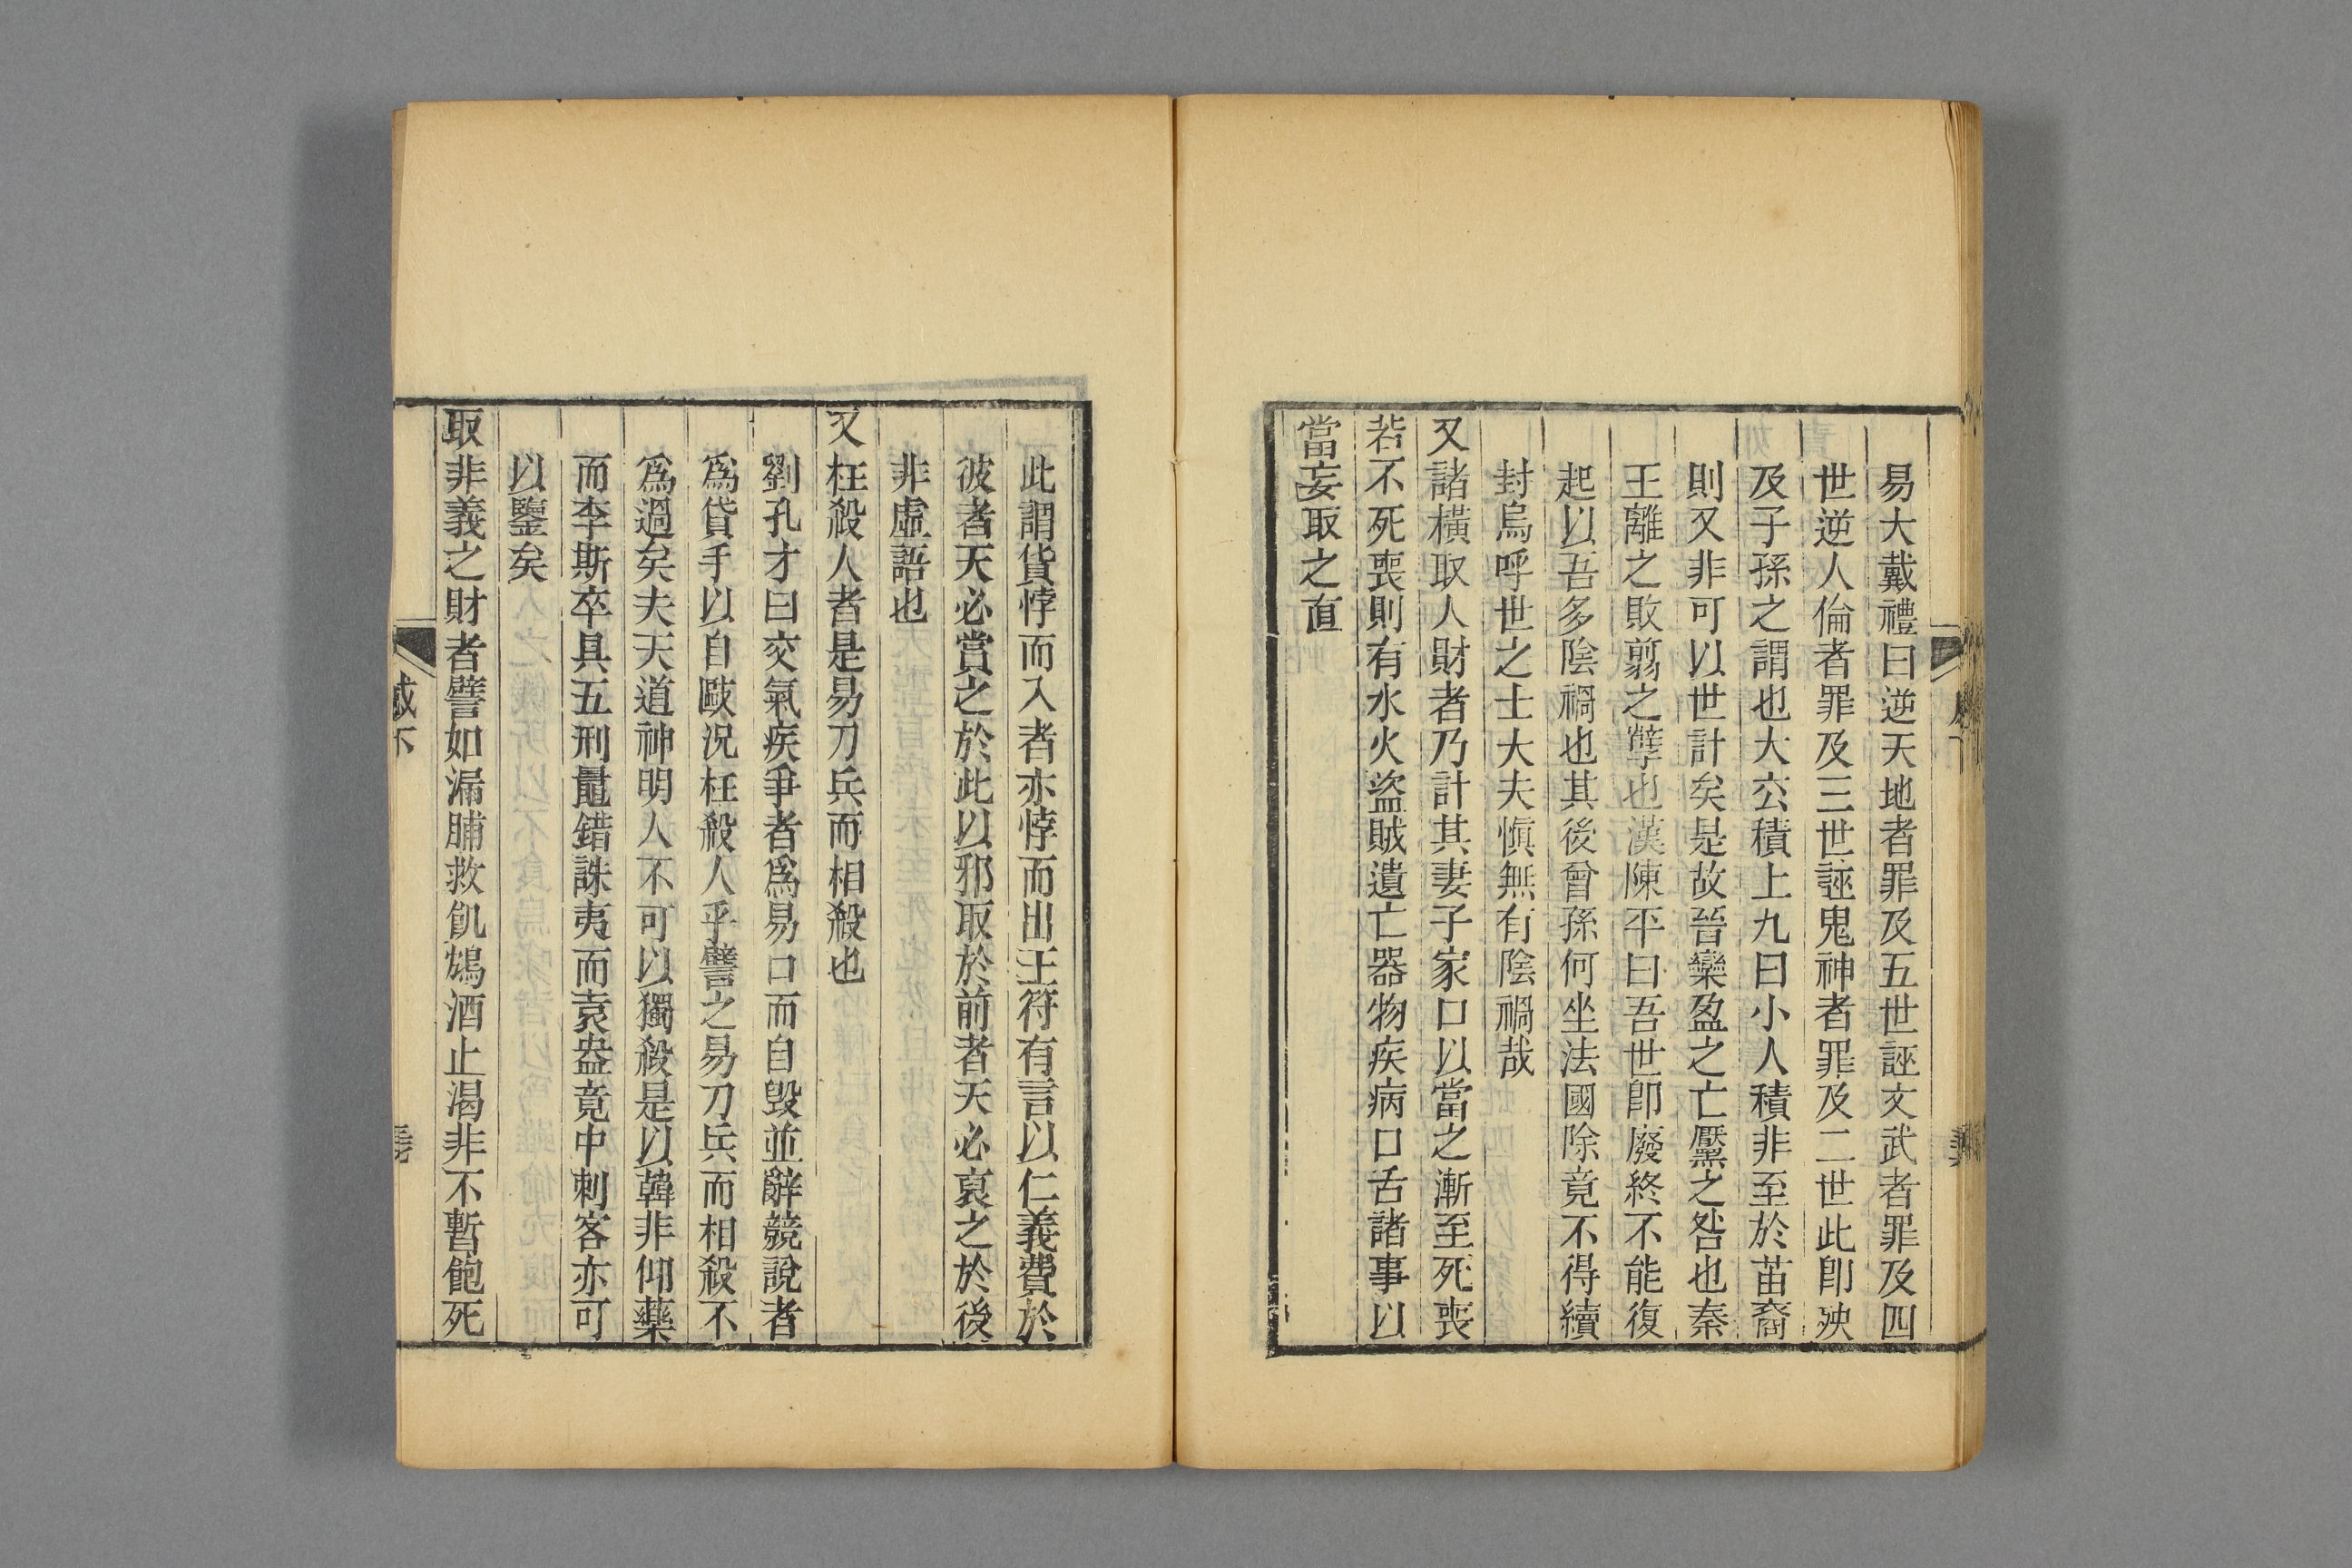 易大戴禮曰逆天地者罪及五世誣文武者罪及四
世逆人倫者罪及三世誣鬼神者罪及二世此卽殃
及子孫之謂也大公積上九曰小人積非至於苗裔
則又非可以世計矣是故晉欒盈之亡黶之咎也秦
王離之敗翦之孽也漢陳平曰吾世卽廢終不能復
起以吾多陰禍也其後曾孫何坐法國除竟不得續
封烏呼世之士大夫愼無有陰禍哉
又諸橫取人財者乃計其妻子家口以當之漸至死喪
若不死喪則有水火盜賊遺亡器物疾病口舌諸事以
當妄取之直
此謂貨悖而入者亦悖而出王符有言以仁義費於
彼者天必賞之於此以邪取於前者天必哀之於後
非虛語也
又枉殺人者是易刀兵而相殺也
劉孔才曰交氣疾爭者爲易口而自毀並辭競說者
爲貸手以自毆況枉殺人乎譬之易刀兵而相殺不
爲過矣夫天道神明人不可以獨殺是以韓非仰藥
而李斯卒具五刑鼂錯誅夷而袁盎竟中刺客亦可
以鑒矣
取非義之財者譬如漏脯救飢鴆酒止渴非不暫飽死